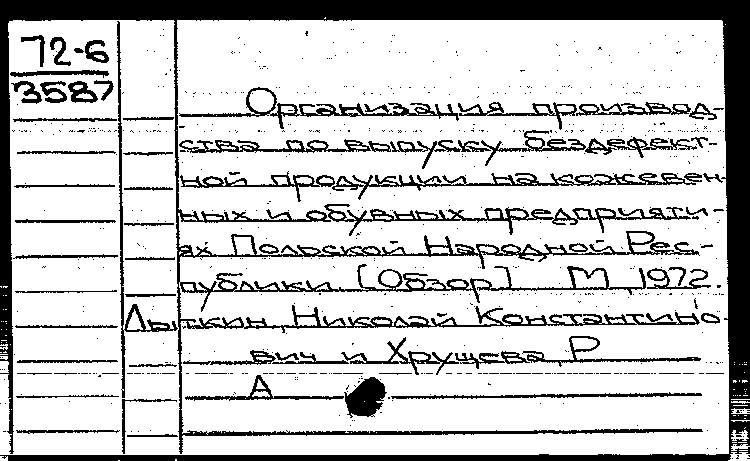 72-6
3587
Организация производ-
ства по выпуску бездефект-
ной продукции на кожевен-
ных и обувных предприяти-
ях Польской Народной Рес-
публики. [Обзор] М, 1972.
Лыткин, Николай Константино-
вич и Хрущева, Р
А